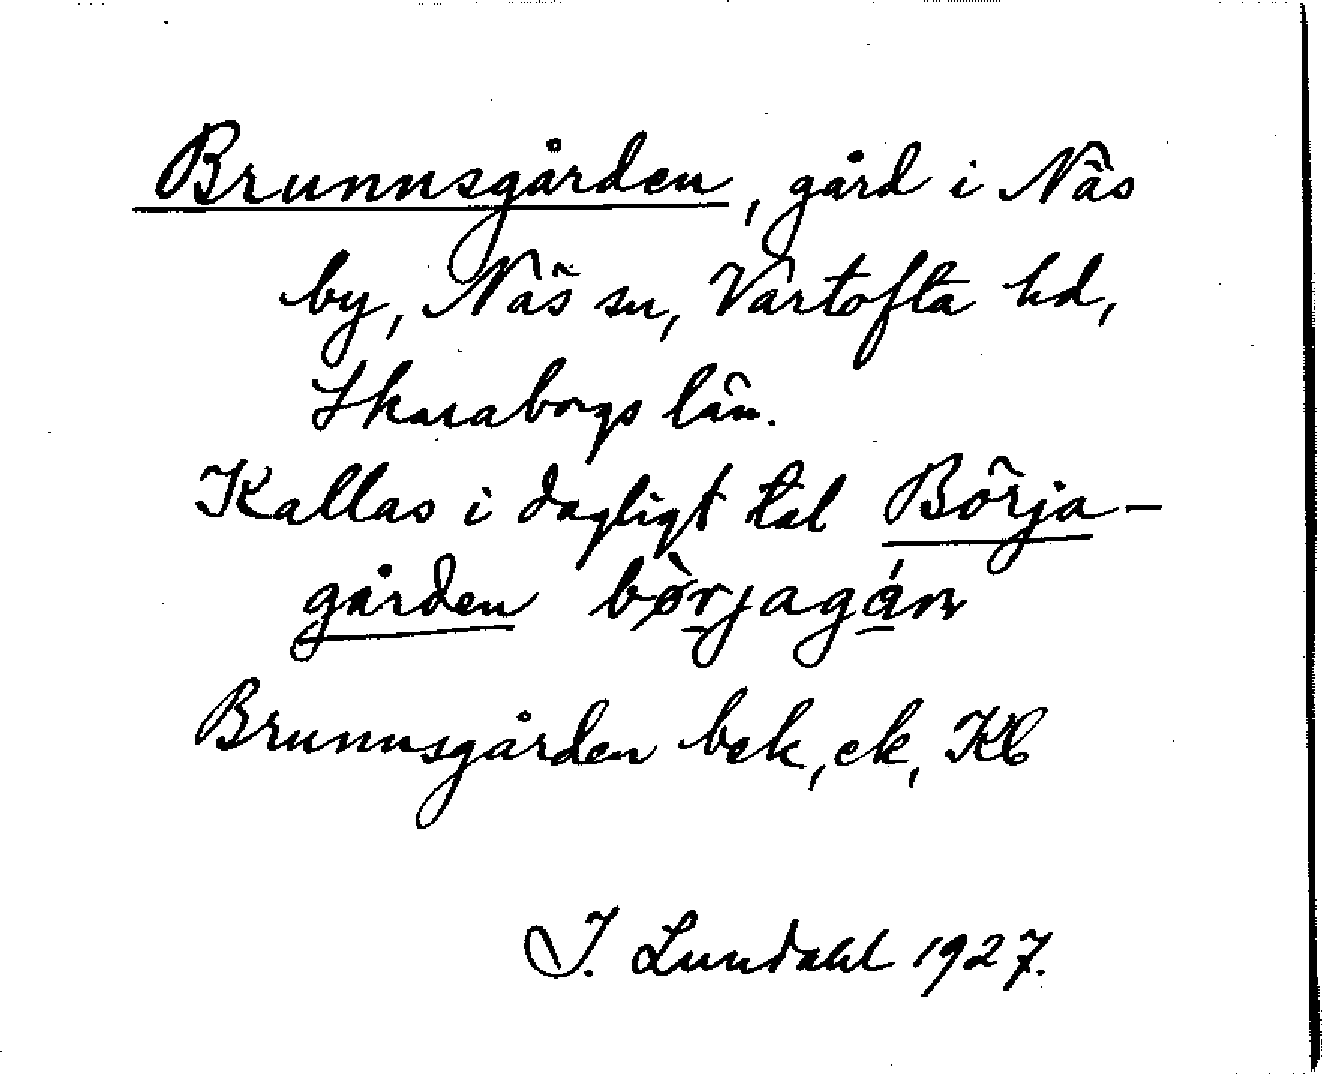 Brunnsgården, gård i Näs
by, Näs sn, Vartofta hd,
Skaraborgs län.
Kallas i dagligt tal Börja-
gården bø̀rjagán
Brunnsgården bek, ek, Kb
I. Lundahl 1927.